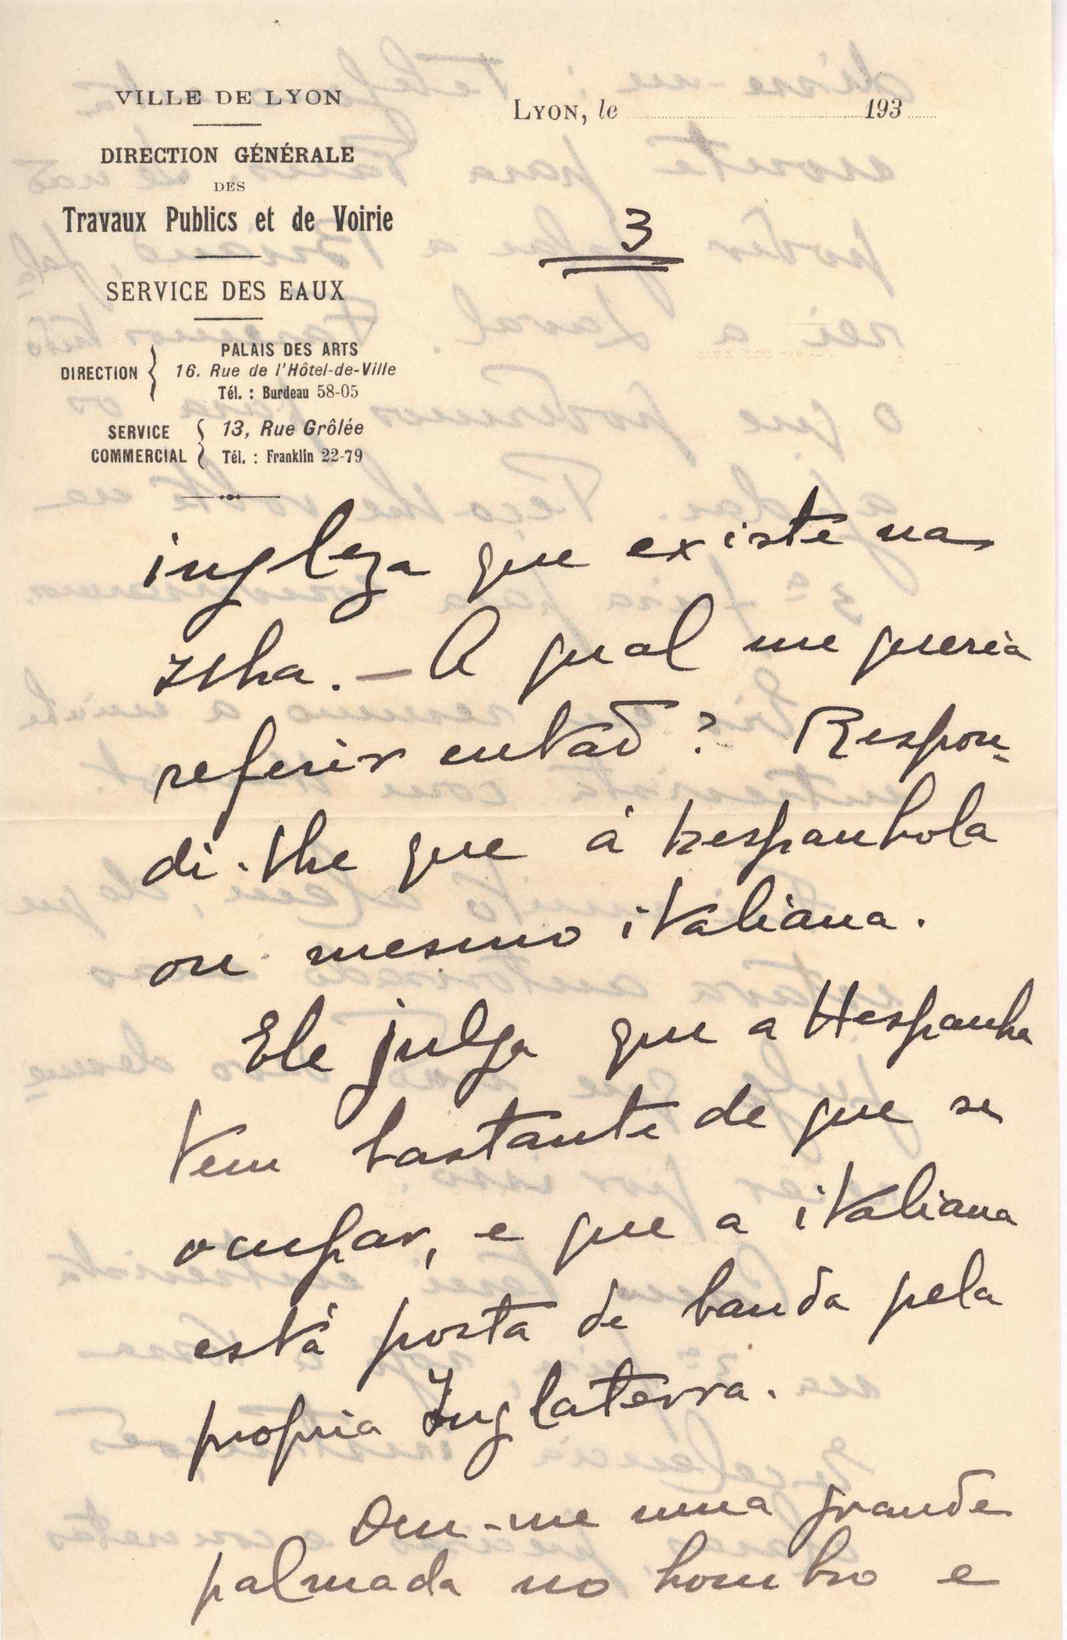 VILLE DE LYON
DIRECTION GÉNÉRALE
DES
Travaux Publics et de Voirie
SERVICE DES EAUX
DIRECTION
PALAIS DES ARTS
16. Rue de l'Hôtel-de-Ville
Tél. : Burdeau 58-05
SERVICE COMMERCIAL
13, Rue Grôlée
Tél. : Franklin 22-79
LYON, le 193
3
ingleza que existe na
Ilha. — A qual me queria
referir então? Respon-
di-lhe que á hespanhola
ou mesmo italiana.
Ele julga que a Hespanha
tem bastante de que se
ocupar, e que a italiana
está posta de banda pela
propria Inglaterra.
Deu-me uma grande
palmada no hombro e